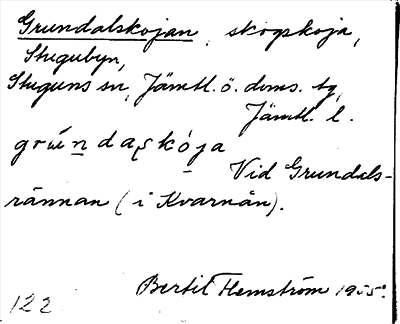 Grundalskojan, skogskoja,
Stugubyn,
Stuguns sn, Jämtl. ö. doms. tg,
Jämtl. l.
grúndaskòja
Vid Grundals-
rännan (i Kvarnån).
Bertil Flemström 1955.
122